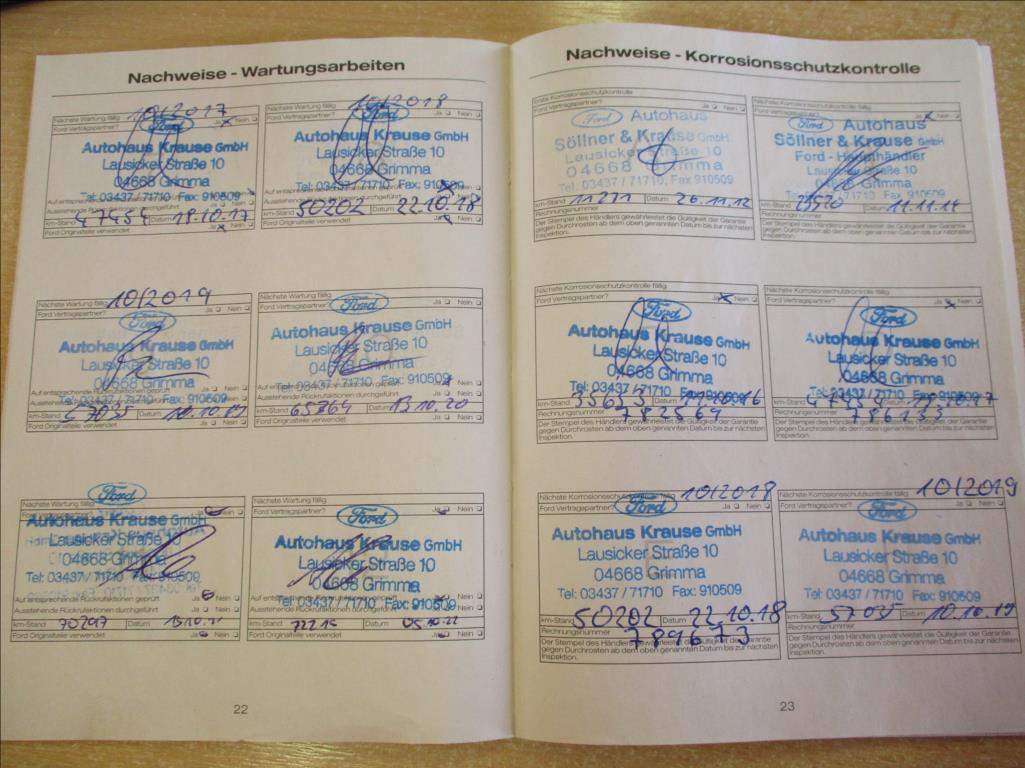 Nachweise - Wartungsarbeiten
10/2017
Ford Vertragspartner? Ja Nein
Ford
Autohaus Krause GmbH
Lausicker Straße 10
04668 Grimma
Tel: 03437 / 71710, Fax: 910509
km-Stand 47454 Datum 18.10.17
Ford Originalteile verwendet Ja Nein
Nächste Wartung fällig 10/2018
Ford Vertragspartner? Ja Nein
Ford
Autohaus Krause GmbH
Lausicker Straße 10
04668 Grimma
Tel: 03437 / 71710 Fax: 910509
km-Stand 50202 Datum 22.10.18
Ford Originalteile verwendet Ja Nein
Nächste Wartung fällig 10/2019
Ford Vertragspartner? Ja Nein
Ford
Autohaus Krause GmbH
Lausicker Straße 10
04668 Grimma
Auf entsprechende Rückrufaktionen geprüft Ja Nein
Tel: 03437 / 71710 Fax: 910509
km-Stand 57035 Datum 10.10.19
Ford Originalteile verwendet
Nächste Wartung fällig
Ford Vertragspartner? Ja Nein
Ford
Autohaus Krause GmbH
Lausicker Straße 10
04668 Grimma
Tel: 03437 / 71710 Fax: 910509
km-Stand 65264 Datum 13.10.20
Ford Originalteile verwendet
Nächste Wartung fällig
Ford
Ford Vertragspartner? Ja Nein
Autohaus Krause GmbH
Lausicker Straße 10
04668 Grimma
Tel: 03437 / 71710 Fax: 910509
Auf entsprechende Rückrufaktionen geprüft
Ausstehende Rückrufaktionen durchgeführt Ja Nein
km-Stand 70297 Datum
Ford Originalteile verwendet Ja Nein
Nächste Wartung fällig
Ford Vertragspartner? Ja Nein
Ford
Autohaus Krause GmbH
Lausicker Straße 10
04668 Grimma
Tel: 03437 / 71710 Fax: 910509
Ausstehende Rückrufaktionen durchgeführt Ja Nein
km-Stand Datum 05.10.22
Ford Originalteile verwendet Ja Nein
22
Nachweise - Korrosionsschutzkontrolle
Erste Korrosionsschutzkontrolle
Ford Vertragspartner? Ja Nein
Ford Autohaus
Söllner & Krause GmbH
Lausicker Straße 10
04668 Grimma
Tel. 03437 / 71710, Fax 910509
km-Stand 11271 Datum 26.11.12
Rechnungsnummer
Der Stempel des Händlers gewährleistet die Gültigkeit der Garantie
gegen Durchrosten ab dem oben genannten Datum bis zur nächsten
Inspektion.
Nächste Korrosionsschutzkontrolle fällig
Ford Vertragspartner? Ja Nein
Ford Autohaus
Söllner & Krause GmbH
Ford - Haupthändler
Lausicker Straße 10
04668 Grimma
km-Stand Datum 11.11.14
Rechnungsnummer
Der Stempel des Händlers gewährleistet die Gültigkeit der Garantie
gegen Durchrosten ab dem oben genannten Datum bis zur nächsten
Inspektion.
Nächste Korrosionsschutzkontrolle fällig
Ford Vertragspartner? Ja Nein
Ford
Autohaus Krause GmbH
Lausicker Straße 10
04668 Grimma
Tel: 03437 / 71710 Fax: 910509
km-Stand Datum
Rechnungsnummer 782569
Der Stempel des Händlers gewährleistet die Gültigkeit der Garantie
gegen Durchrosten ab dem oben genannten Datum bis zur nächsten
Inspektion.
Nächste Korrosionsschutzkontrolle fällig
Ford Vertragspartner? Ja Nein
Ford
Autohaus Krause GmbH
Lausicker Straße 10
04668 Grimma
Tel: 03437 / 71710 Fax: 910509
km-Stand Datum
Rechnungsnummer 786133
Der Stempel des Händlers gewährleistet die Gültigkeit der Garantie
gegen Durchrosten ab dem oben genannten Datum bis zur nächsten
Inspektion.
Nächste Korrosionsschutzkontrolle fällig 10/2018
Ford Vertragspartner? Ja Nein
Ford
Autohaus Krause GmbH
Lausicker Straße 10
04668 Grimma
Tel: 03437 / 71710 Fax: 910509
km-Stand 50202 Datum 22.10.18
Rechnungsnummer 789673
Der Stempel des Händlers gewährleistet die Gültigkeit der Garantie
gegen Durchrosten ab dem oben genannten Datum bis zur nächsten
Inspektion.
Nächste Korrosionsschutzkontrolle fällig 10/2019
Ford Vertragspartner? Ja Nein
Ford
Autohaus Krause GmbH
Lausicker Straße 10
04668 Grimma
Tel: 03437 / 71710 Fax: 910509
km-Stand 57035 Datum 10.10.19
Rechnungsnummer
Der Stempel des Händlers gewährleistet die Gültigkeit der Garantie
gegen Durchrosten ab dem oben genannten Datum bis zur nächsten
Inspektion.
23